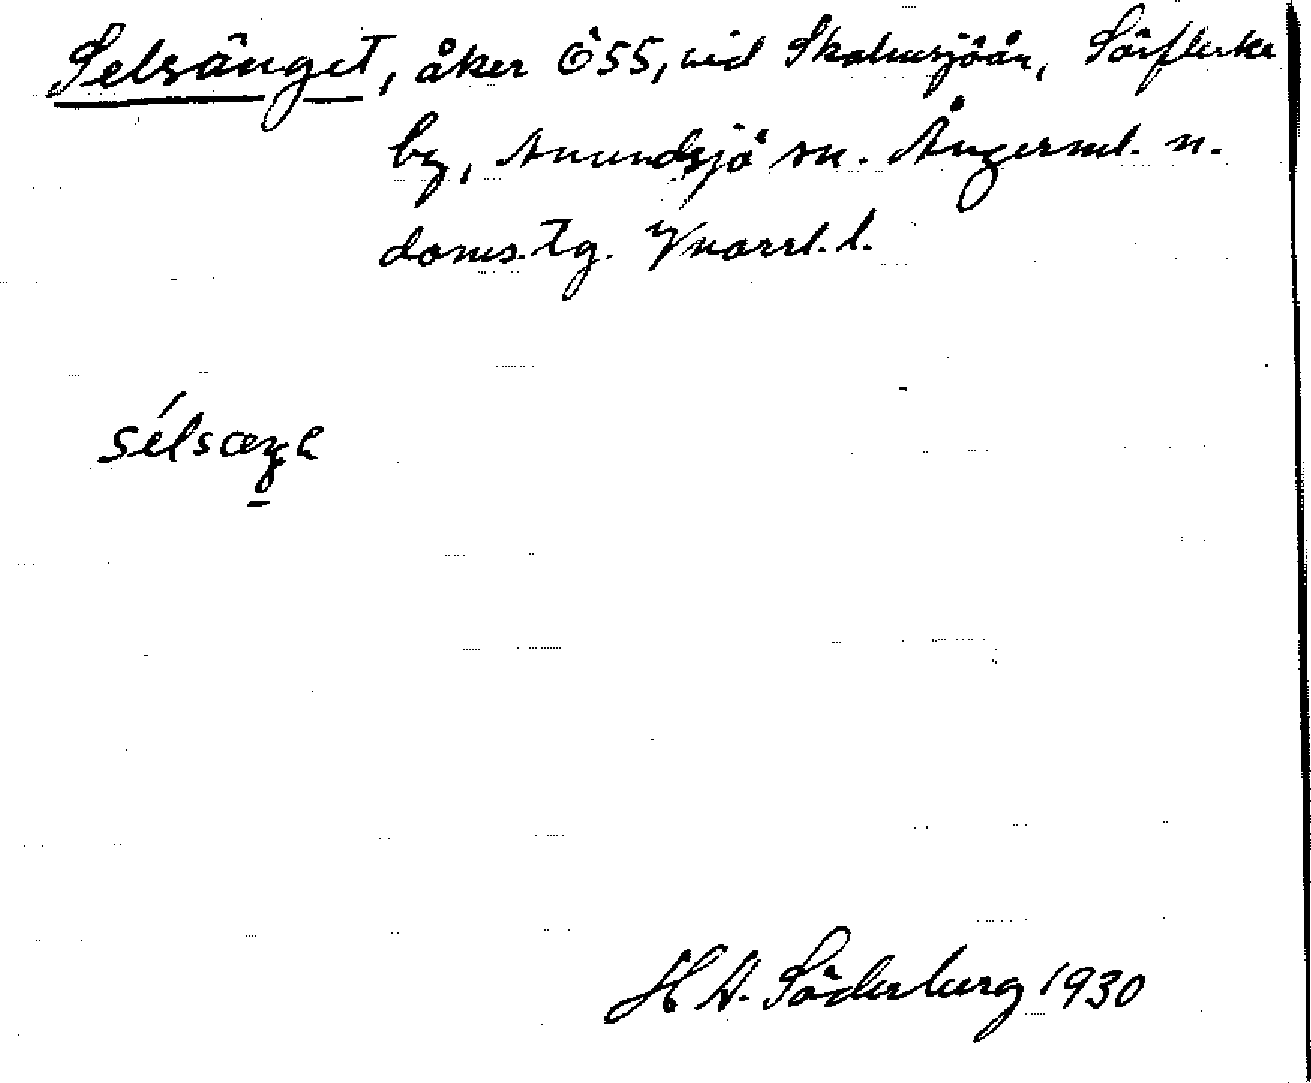 Selsänget, åker ÖSS, vid Skalmsjöån, Sörflärke
by, Anundsjö sn. Ångerml. n.
doms.tg. Vnorrl. l.
sélsæŋe
H A. Söderberg 1930